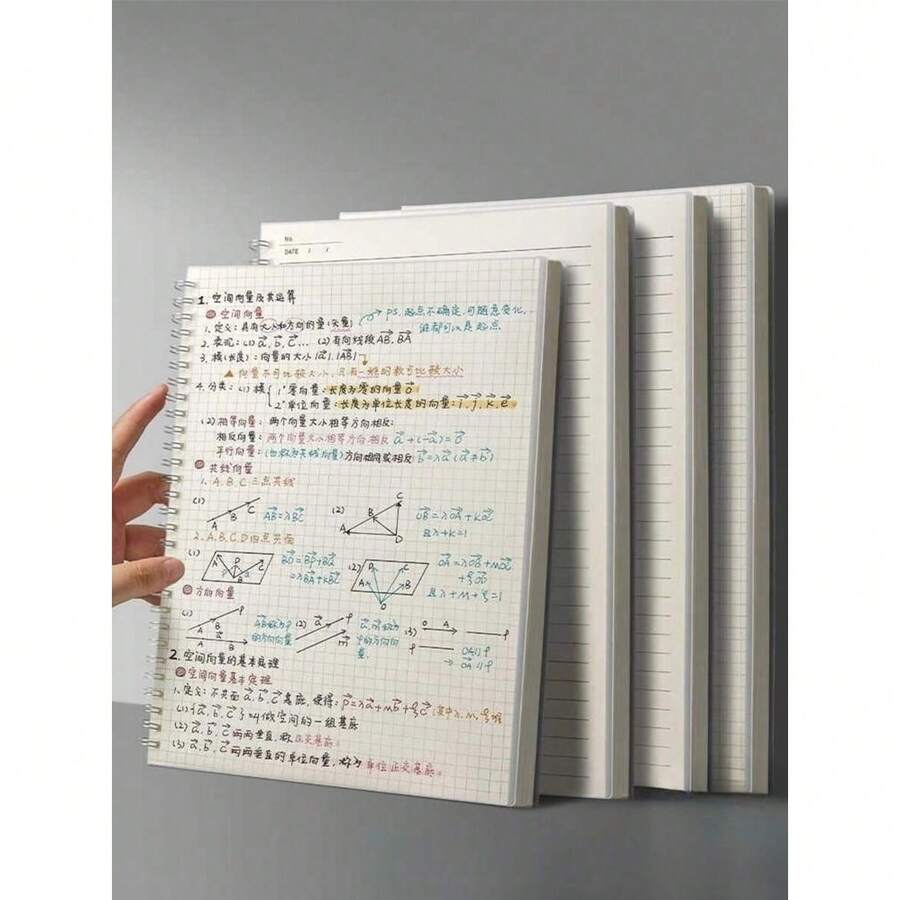 No.
DATE / /
1. 空间向量及其运算
空间向量
1. 定义：具有大小和方向的量(矢量)
PS. 起点不确定，可随意变化，
谁都可以是起点
2. 表示：(1) a⃗, b⃗, c⃗... (2) 有向线段 AB⃗, BA⃗
3. 模(长度)：向量的大小 |a⃗|, |AB⃗|
▲ 向量不可比较大小，只有一模的数可比较大小
4. 分类：(1) 模 { 1° 零向量：长度为零的向量 0⃗
2° 单位向量：长度为单位长度的向量：i⃗, j⃗, k⃗, e⃗
(2) 相等向量：两个向量大小相等方向相反：
相反向量：两个向量大小相等方向相反 a⃗+(-a⃗)=0⃗
平行向量：(也称为共线向量) 方向相同或相反 b⃗=λa⃗ (a⃗≠b⃗)
共线向量
1. A、B、C 三点共线
(1) A B C AB⃗=λBC⃗
(2) A B C D OB⃗=λOA⃗+KOC⃗
且λ+K=1
2. A、B、C、D 四点共面
(1) A D B C BD⃗=BP⃗+BQ⃗
=λBA⃗+KBC⃗
(2) A D C B O OA⃗=λOB⃗+MOC⃗
+ξOD⃗
且λ+M+ξ=1
方向向量
(1) A B l A a⃗ B AB⃗称为l
的方向向量
(2) a⃗ l m⃗ a⃗, m⃗称为
l的方向向
量.
(3) O A l
l OA∥l
→ OA⃗∥l
2. 空间向量的基本定理
空间向量基本定理
1. 定义：不共面 a⃗, b⃗, c⃗ 基底，使得：p⃗=λa⃗+Mb⃗+ξc⃗ (其中λ, M, ξ唯
(1) {a⃗, b⃗, c⃗} 叫做空间的一组基底
(2) a⃗, b⃗, c⃗ 两两垂直，称正交基底。
(3) a⃗, b⃗, c⃗ 两两垂直的单位向量，称为单位正交基底。